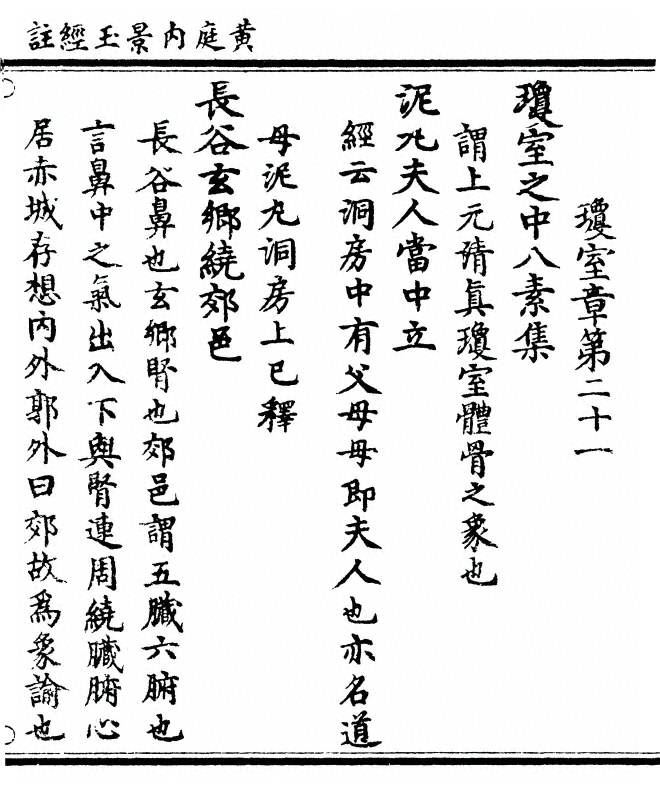 黄庭内景玉經註
瓊室章第二十一
瓊室之中八素集
謂上元清眞瓊室體骨之象也
泥丸夫人當中立
經云洞房中有父母母即夫人也亦名道
母泥丸洞房上已釋
長谷玄鄉繞郊邑
長谷鼻也玄鄉腎也郊邑謂五臟六腑也
言鼻中之氣出入下與腎連周繞臟腑心
居赤城存想内外郭外曰郊故爲象諭也